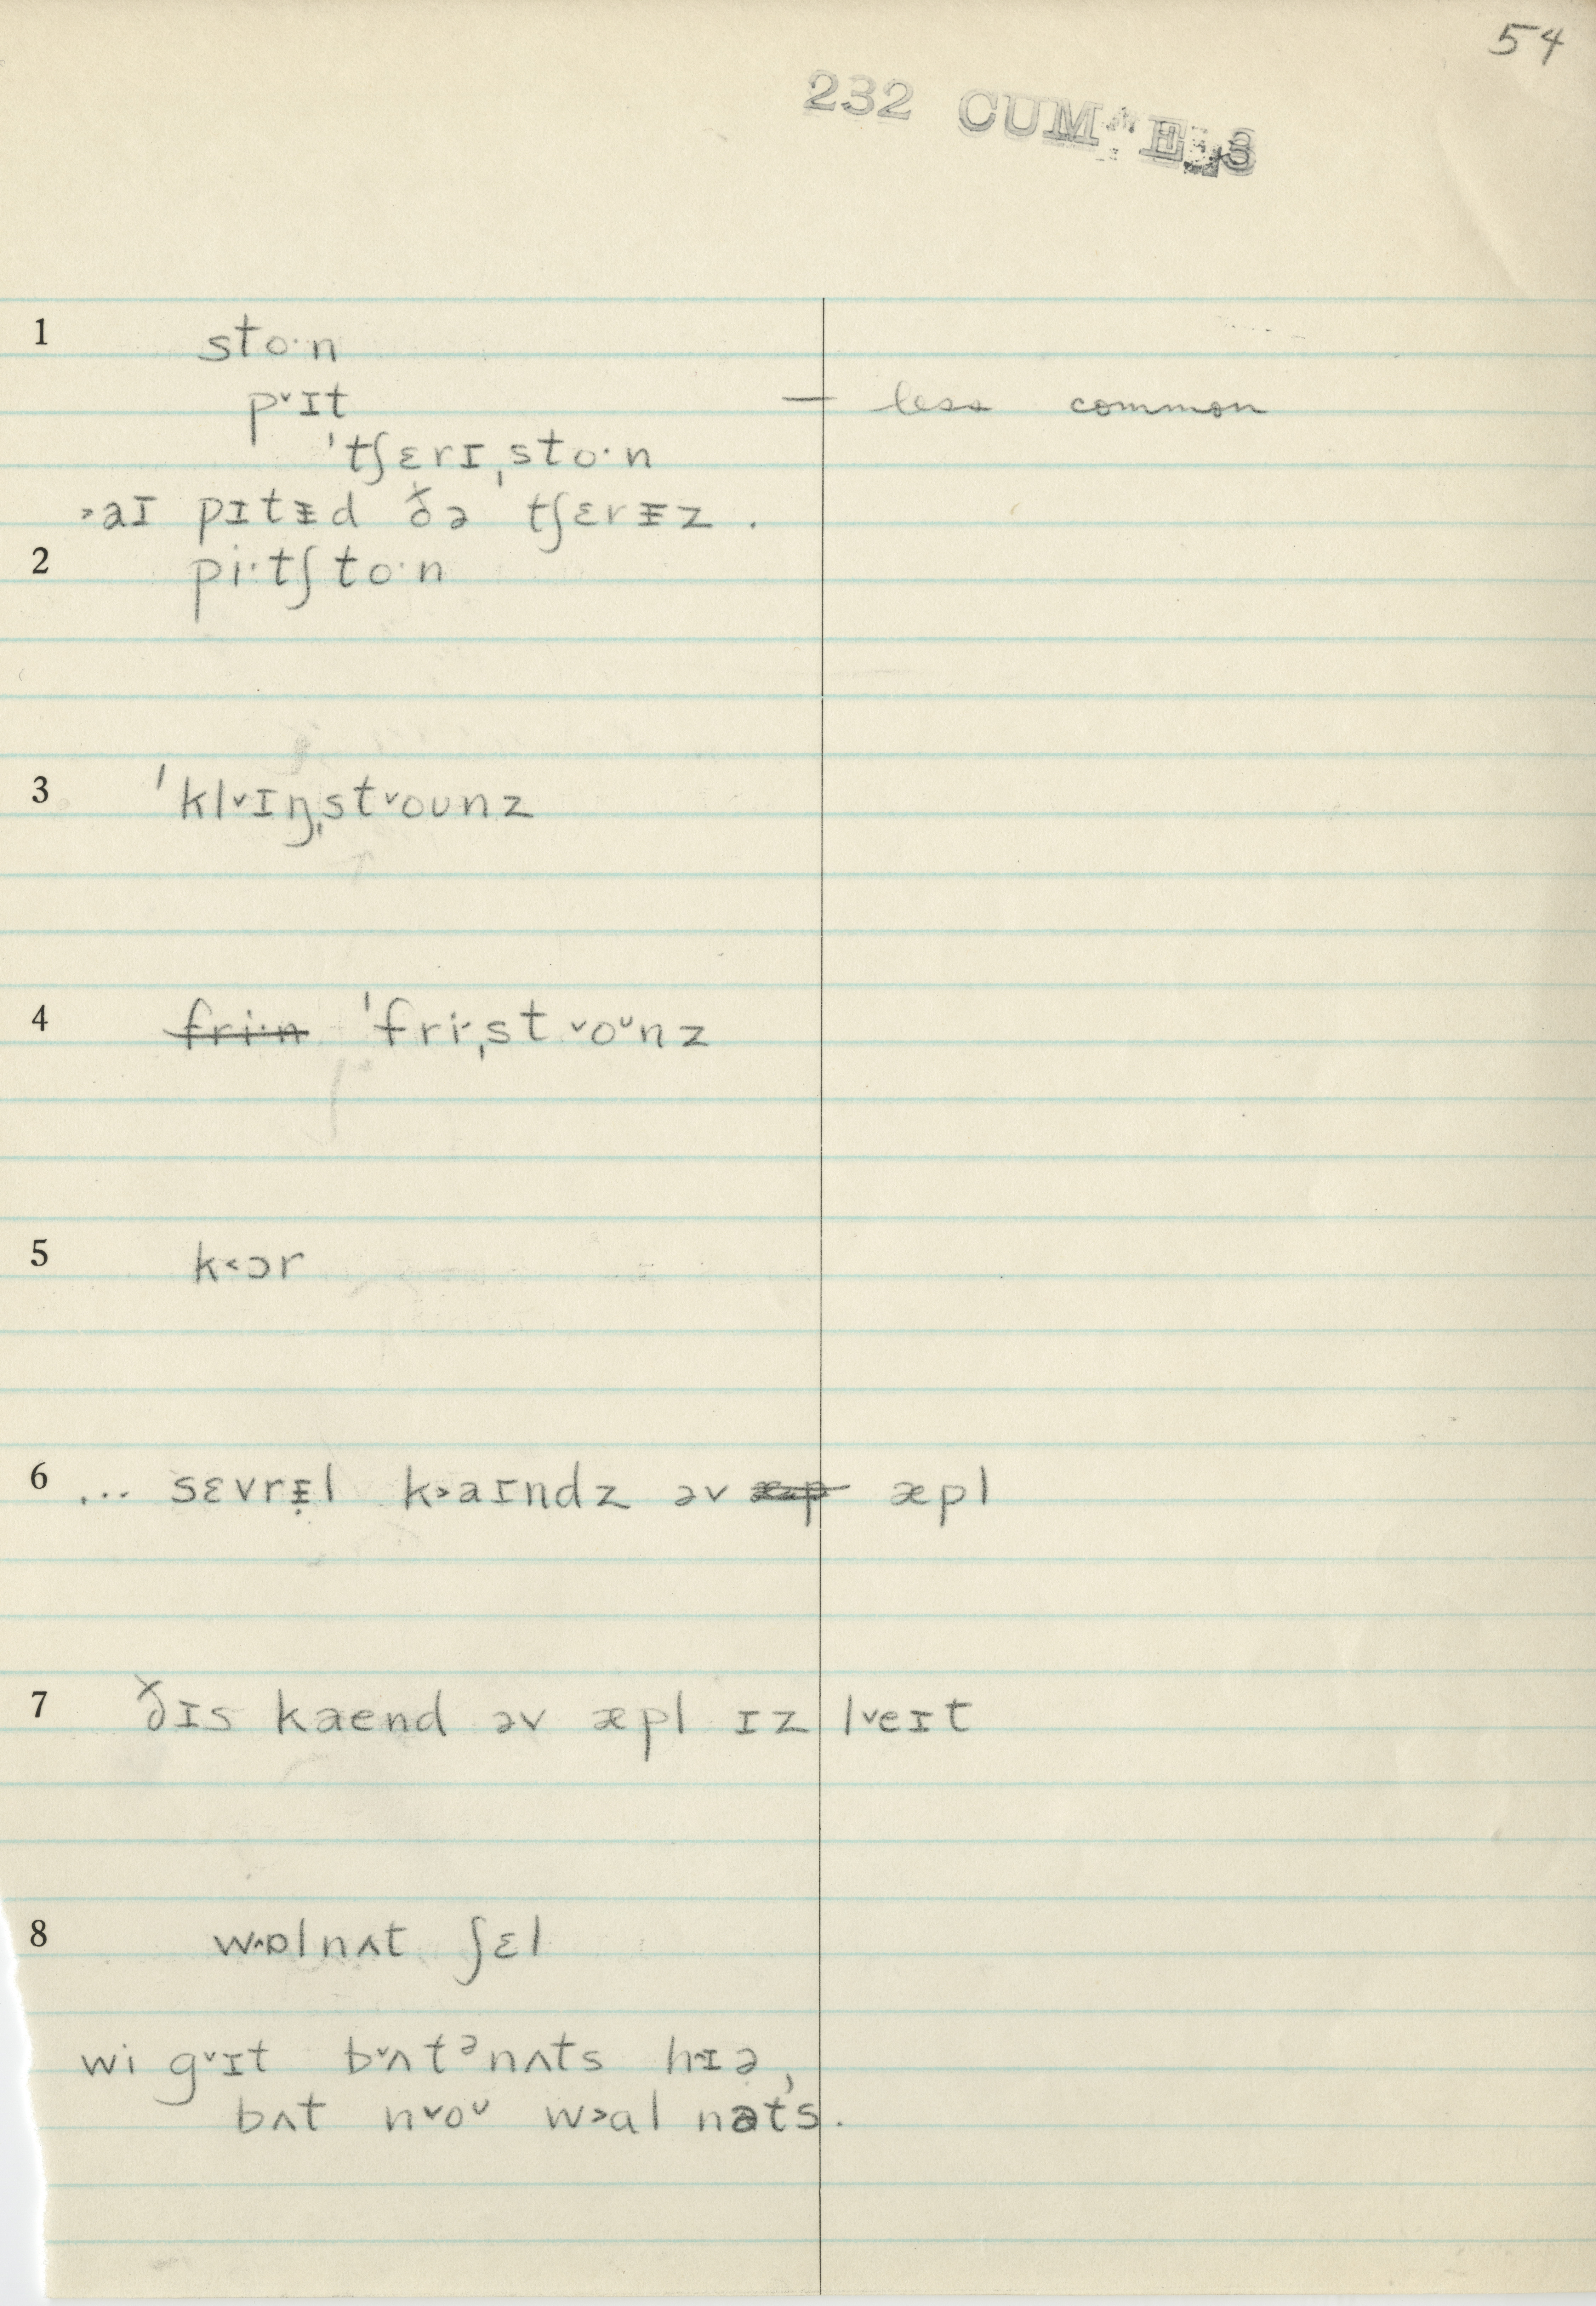 54
232
1 sto·n
p˅ɪt — less common
ˈtʃɛrɪˌsto·n
˃aɪ pɪtɪ̵d ðə tʃɛrɪ̵z.
2 pi·tʃto·n
3 ˈkl˅ɪŋˌst˅oʊnz
4 fri·n ˈfri·ˌst˅oᶷnz
5 k˂ɔr
6 ... sɛvrɪ̵l k˃aɪndz əv æp æpl
7 ðɪs kaend əv æpl ɪz l˅eɪt
8 w˄ɒlnʌt ʃɛl
wi g˅ɪt b˅ʌtᵊnʌts hɪə,
bʌt n˅oᶷ w˃al nəts.